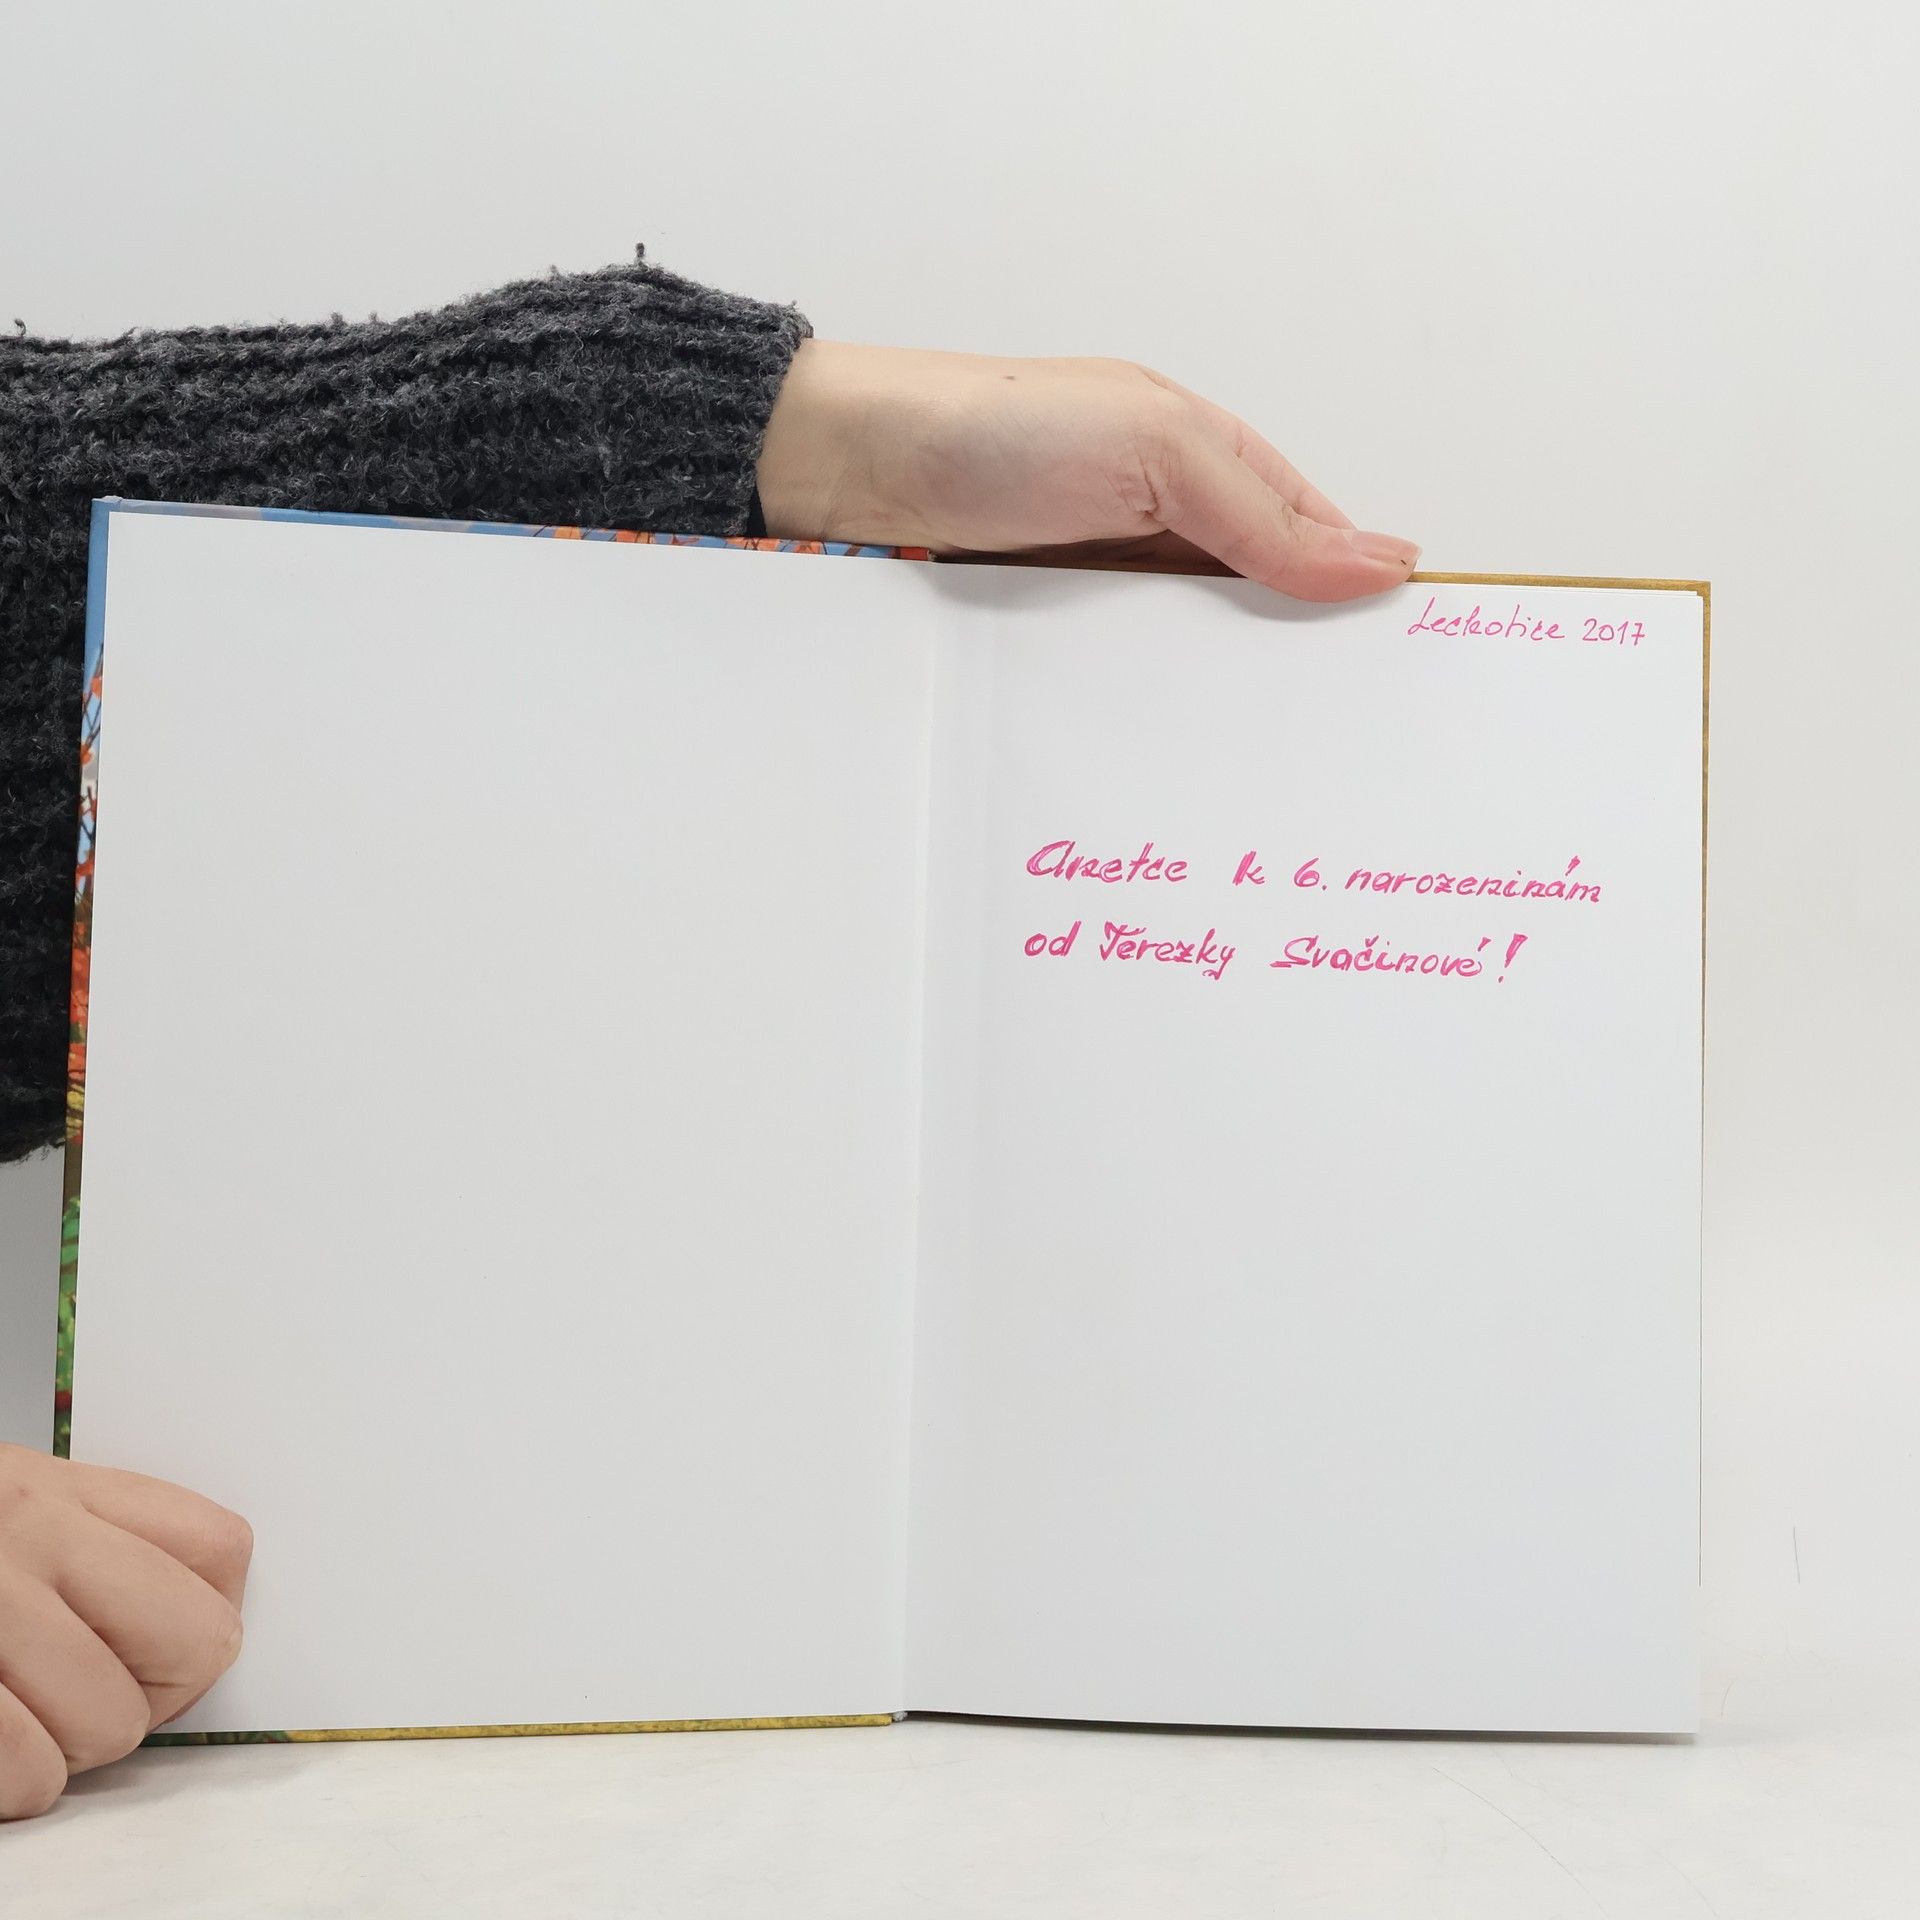 Leckotice 2017
Anetce k 6. narozeninám
od Terezky Svačinové!